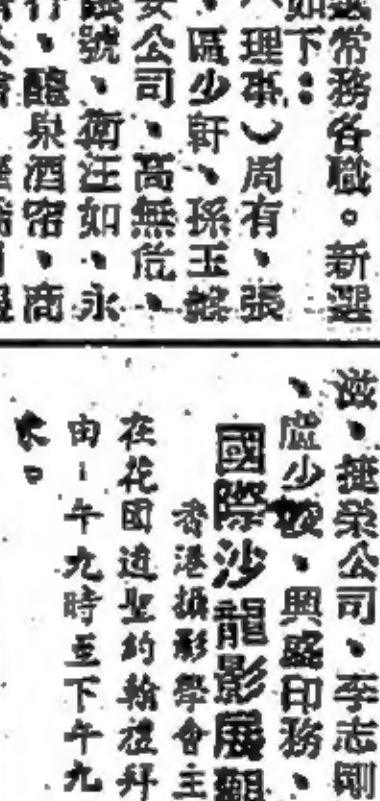 選常務各職。新選
如下：
人理事）周有、張
、區少軒、孫玉
安公司、高無危、
號、衛汪如、永
行、醴泉酒帘、商
滋、捷榮公司、李志剛
、盧少、興盛印務、
國際沙龍影展觀
香港攝影學會主
在花園道聖約翰禮拜
由上午九時至下午九